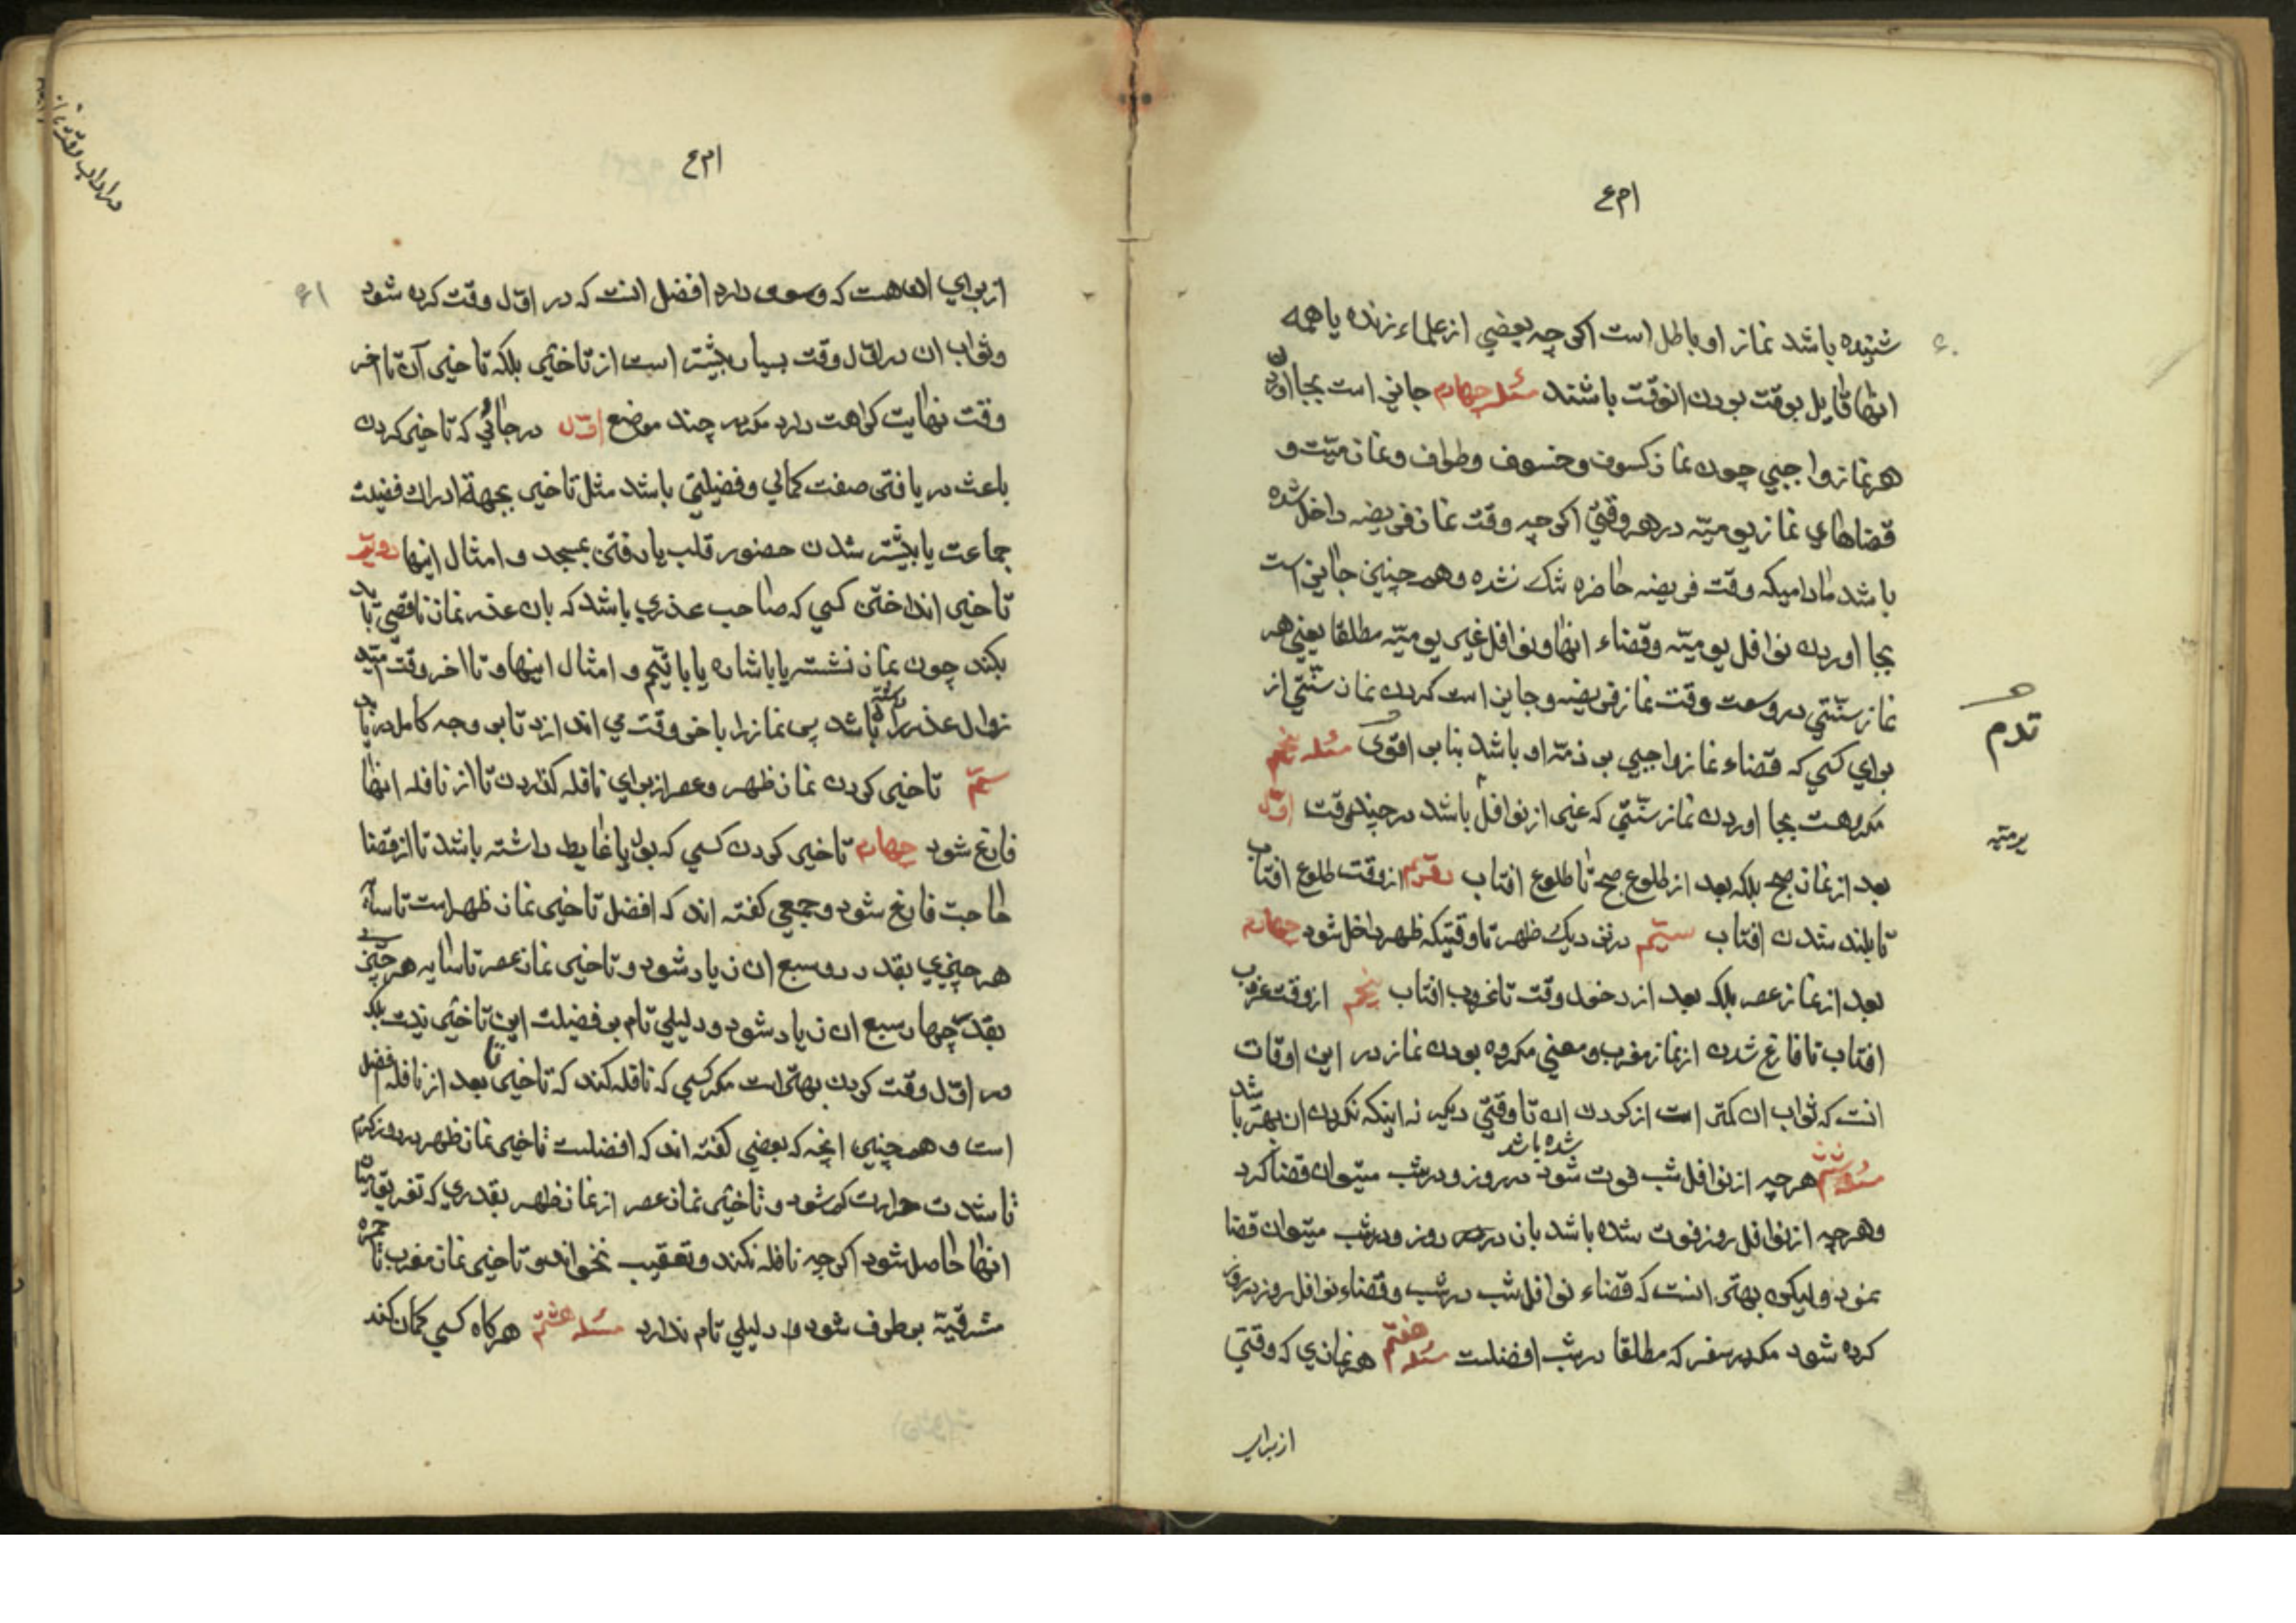 ام ع
شنیده باشد نماز او باطل است اکرچه بعضي از علماء زنده یا همه
انها قایل بوقت بودن انوقت باشند مسئله چهارم جایز است بجا اوردن
هر نماز واجبي چون نماز کسوف و خسوف و طواف و نماز میّت و
قضاهاي نماز یومیّه در هر وقتي اکرچه وقت نماز فریضه داخل شده
باشد مادامیکه وقت فریضه حاضره تنک نشده و همچنین جایز است
بجا اوردن نوافل یومیّه و قضاء انها و نوافل غیر یومیّه مطلقا یعني هر
نماز سنّتي در وسعت وقت نماز فریضه و جایز است کردن نماز سنّتي از
براي کسي که قضاء نماز واجبي بر ذمّه او باشد بنابر اقوی مسئله پنجم
مکروهست بجا اوردن نماز سنّتي که غیر از نوافل باشد در چند وقت اوّل
بعد از نماز صبح بلکه بعد از طلوع صبح تا طلوع افتاب دوّیم از وقت طلوع افتاب
تا بلند شدن افتاب سیّم در نزدیک ظهر تا وقتیکه ظهر داخل شود چهارم
بعد از نماز عصر بلکه بعد از دخول وقت تا غروب افتاب پنجم از وقت غروب
افتاب تا فارغ شدن از نماز مغرب و معني مکروه بودن نماز در این اوقات
انست که ثواب ان کمتر است از کردن ان تا وقتي دیکر نه اینکه نکردن ان بهتر باشد
مسئله ششم هرچه از نوافل شب فوت شود شده باشد در روز و در شب میتوان قضا کرد
و هرچه از نوافل روز فوت شده باشد بان در روز و در شب میتوان قضا
نمود و لیکن بهتر انست که قضاء نوافل شب در شب و قضاء نوافل روز در روز
کرده شود مکر در سفر که مطلقا در شب افضلست مسئله هفتم هر نمازي که وقتي
از براي
یومیّه
ام ع
۶۱
از براي ان هست که وسعت دارد افضل انست که در اوّل وقت کرده شود
و ثواب ان در اوّل وقت بسیار بیشتر است از تاخیر بلکه تاخیر آن تا اخر
وقت نهایت کراهت دارد مکر در چند موضع اوّل در جائي که تاخیر کردن
باعث دریافتن صفت کمالي و فضیلتي باشد مثل تاخیر بجهة ادراک فضیلت
جماعت یا بیشتر شدن حضور قلب یا رفتن بمسجد و امثال اینها دویّم
تاخیر انداختن کسي که صاحب عذري باشد که بان عذر نماز ناقصي باید
بکند چون نماز نشسته یا باشاره یا با تیمّم و امثال اینها و تا اخر وقت امید
زوال عذر را داشته باشد پس نماز را باخر وقت مي اندازد تا بر وجه کامل دریابد
سیّم تاخیر کردن نماز ظهر و عصر از براي نافله کذاردن تا از نافله انها
فارغ شود چهارم تاخیر کردن کسي که بول یا غایط داشته باشد تا از قضا
حاجت فارغ شود و جمعي کفته اند که افضل تاخیر نماز ظهر است تا سایه
هر چیزي بقدر دو سبع ان زیاد شود و تاخیر نماز عصر تا سایه هر چیزي
بقدر چهار سبع ان زیاد شود و دلیلي تام بر فضیلت این تاخیر نیست بلکه
در اوّل وقت کردن بهتر است مکر کسي که نافله کند که تاخیر تا بعد از نافله افضل
است و همچنین انچه که بعضي کفته اند که افضلست تاخیر نماز ظهر در روز کرم
تا شدت حرارت کم شود و تاخیر نماز عصر از نماز ظهر بقدري که تفریق میان
انها حاصل شود اکرچه نافله نکند و تعقیب نخواند و تاخیر نماز مغرب تا حمره
مشرقیّه بر طرف شود و دلیلي تام ندارد مسئله هشتم هرکاه کسي کمان کند